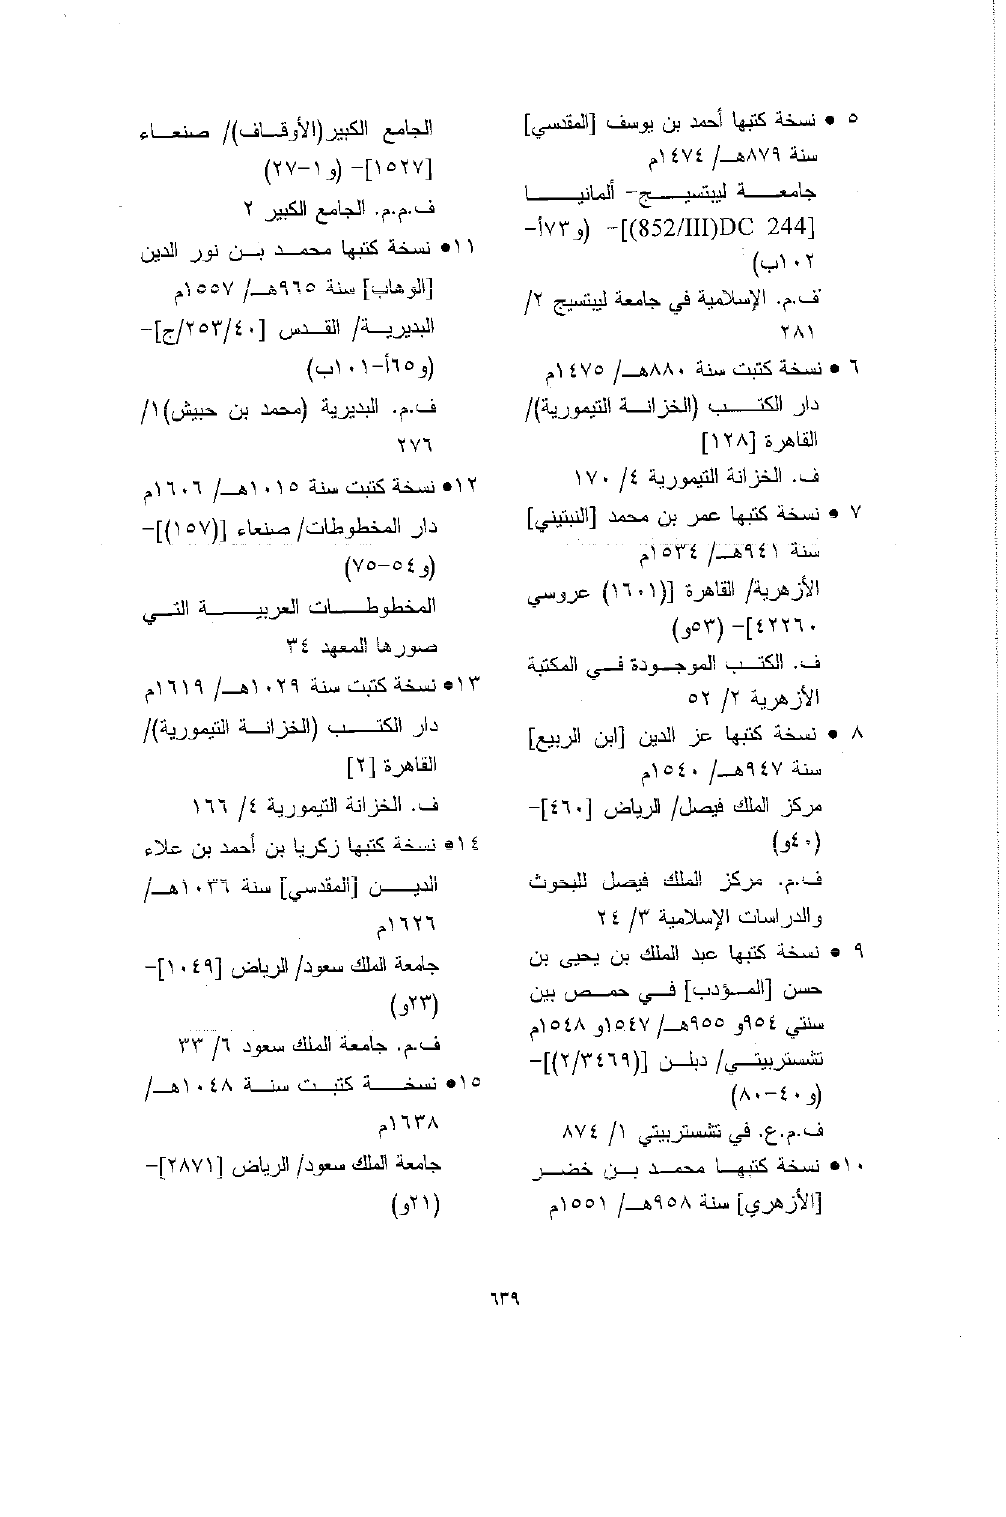 ٥ • نسخة كتبها أحمد بن يوسف [المقدسي]
سنة ٨٧٩هـ/ ١٤٧٤م
جامعة ليبتسيج- ألمانيا
[852/III)DC 244)]- (و٧٣أ-
١٠٢ب)
ف.م. الإسلامية في جامعة ليبتسيج ٢/
٢٨١
٦ • نسخة كتبت سنة ٨٨٠هـ/ ١٤٧٥م
دار الكتب (الخزانة التيمورية)/
القاهرة [١٢٨]
ف. الخزانة التيمورية ٤/ ١٧٠
٧ • نسخة كتبها عمر بن محمد [النبتيني]
سنة ٩٤١هـ/ ١٥٣٤م
الأزهرية/ القاهرة [(١٦٠١) عروسي
٤٢٢٦٠]- (٥٣و)
ف. الكتب الموجودة في المكتبة
الأزهرية ٢/ ٥٢
٨ • نسخة كتبها عز الدين [ابن الربيع]
سنة ٩٤٧هـ/ ١٥٤٠م
مركز الملك فيصل/ الرياض [٤٦٠]-
(٤٠و)
ف.م. مركز الملك فيصل للبحوث
والدراسات الإسلامية ٣/ ٢٤
٩ • نسخة كتبها عبد الملك بن يحيى بن
حسن [المؤدب] في حمص بين
سنتي ٩٥٤و ٩٥٥هـ/ ١٥٤٧و ١٥٤٨م
تشستربيتي/ دبلن [(٢/٣٤٦٩)]-
(و٤٠-٨٠)
ف.م.ع. في تشستربيتي ١/ ٨٧٤
١٠• نسخة كتبها محمد بن خضر
[الأزهري] سنة ٩٥٨هـ/ ١٥٥١م
الجامع الكبير(الأوقاف)/ صنعاء
[١٥٢٧]- (و١-٢٧)
ف.م.م. الجامع الكبير ٢
١١• نسخة كتبها محمد بن نور الدين
[الوهاب] سنة ٩٦٥هـ/ ١٥٥٧م
البديرية/ القدس [٢٥٣/٤٠/ج]-
(و٦٥أ-١٠١ب)
ف.م. البديرية (محمد بن حبيش)١/
٢٧٦
١٢• نسخة كتبت سنة ١٠١٥هـ/ ١٦٠٦م
دار المخطوطات/ صنعاء [(١٥٧)]-
(و٥٤-٧٥)
المخطوطات العربية التي
صورها المعهد ٣٤
١٣• نسخة كتبت سنة ١٠٢٩هـ/ ١٦١٩م
دار الكتب (الخزانة التيمورية)/
القاهرة [٢]
ف. الخزانة التيمورية ٤/ ١٦٦
١٤• نسخة كتبها زكريا بن أحمد بن علاء
الدين [المقدسي] سنة ١٠٣٦هـ/
١٦٢٦م
جامعة الملك سعود/ الرياض [١٠٤٩]-
(٢٣و)
ف.م. جامعة الملك سعود ٦/ ٣٣
١٥• نسخة كتبت سنة ١٠٤٨هـ/
١٦٣٨م
جامعة الملك سعود/ الرياض [٢٨٧١]-
(٢١و)
٦٣٩